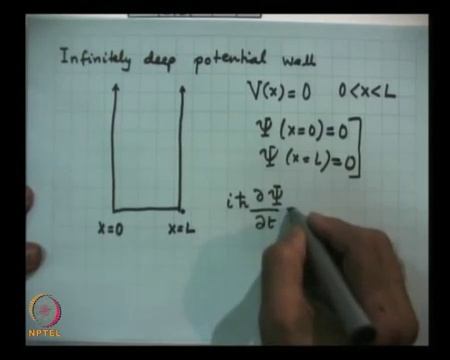 Infinitely deep potential well
V(x)=0 0<x<L
Ψ (x=0)=0
Ψ (x=L)=0
iħ ∂Ψ/∂t
x=0 x=L
NPTEL